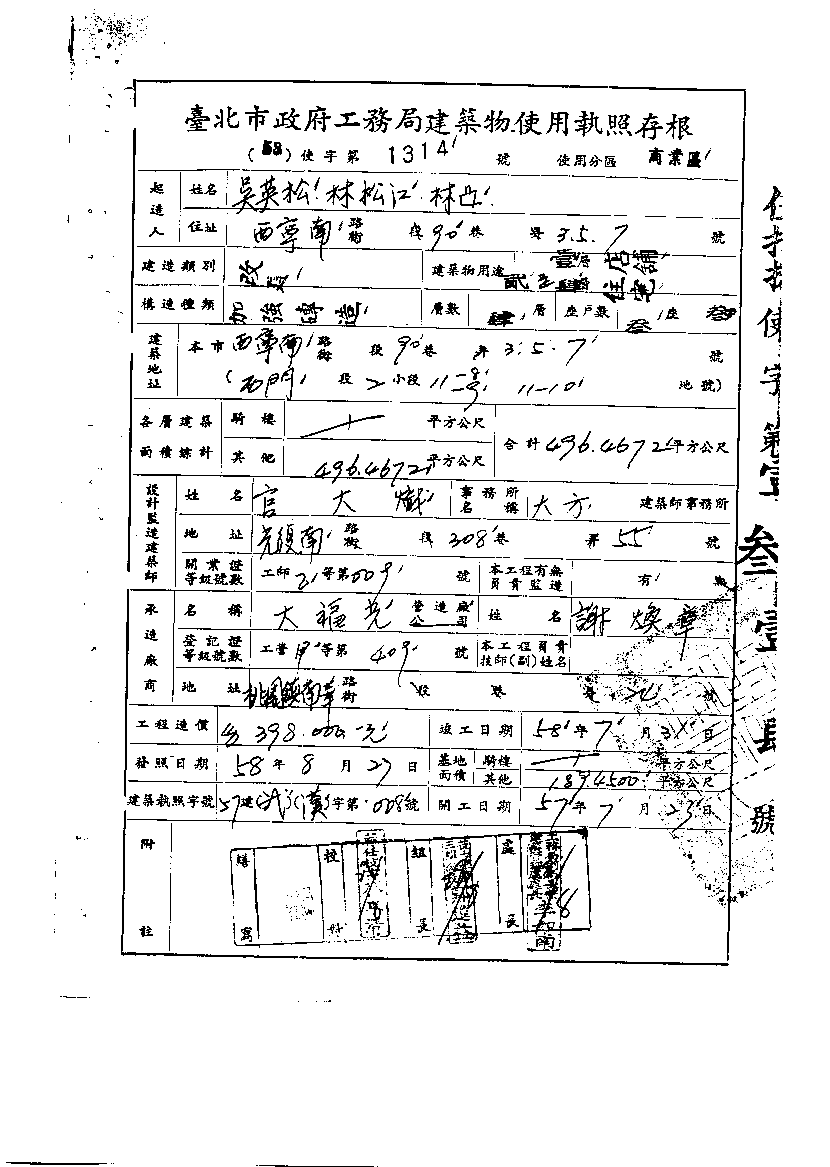 臺北市政府工務局建築物使用執照存根
(58)使字第 1314 號 使用分區 商業區
起造人 姓名 吳英松 林松江 林凸
住址 西寧南路街 段 90巷 弄 3.5.7 號
建造類別 改建 建築物用途 壹層店舖 貳至肆層住宅
構造種類 加強磚造 層數 肆層 座戶數 叁座 叁
建築地址 本市 西寧南路街 段 90巷 弄 3.5.7 號
(西門 段 2小段 11-8 11-10 地號)
各層建築面積總計 騎樓 平方公尺 合計 496.4672平方公尺
其他 496.4672平方公尺
設計監造建築師 姓名 官大 事務所名稱 大方 建築師事務所
地址 光復南路街 段 308巷 弄 55 號
開業證等級號數 工師 等第009 號 本工程有無負責監造 有 無
承造廠商 名稱 大福 營造廠公司 姓名 謝煥章
登記證等級號數 工營甲等第 409 號 本工程負責技師(副)姓名
地址 桃園鎮南華路街 段 巷 弄 號
工程造價 398.000.元 竣工日期 58年7月31日
發照日期 58年8月27日 基地面積 騎樓 平方公尺
其他 189.4500 平方公尺
建築執照字號 57建( )( )字第008號 開工日期 57年7月23日
附註
繕寫 校對 組長 處長
使字第壹叁壹肆號